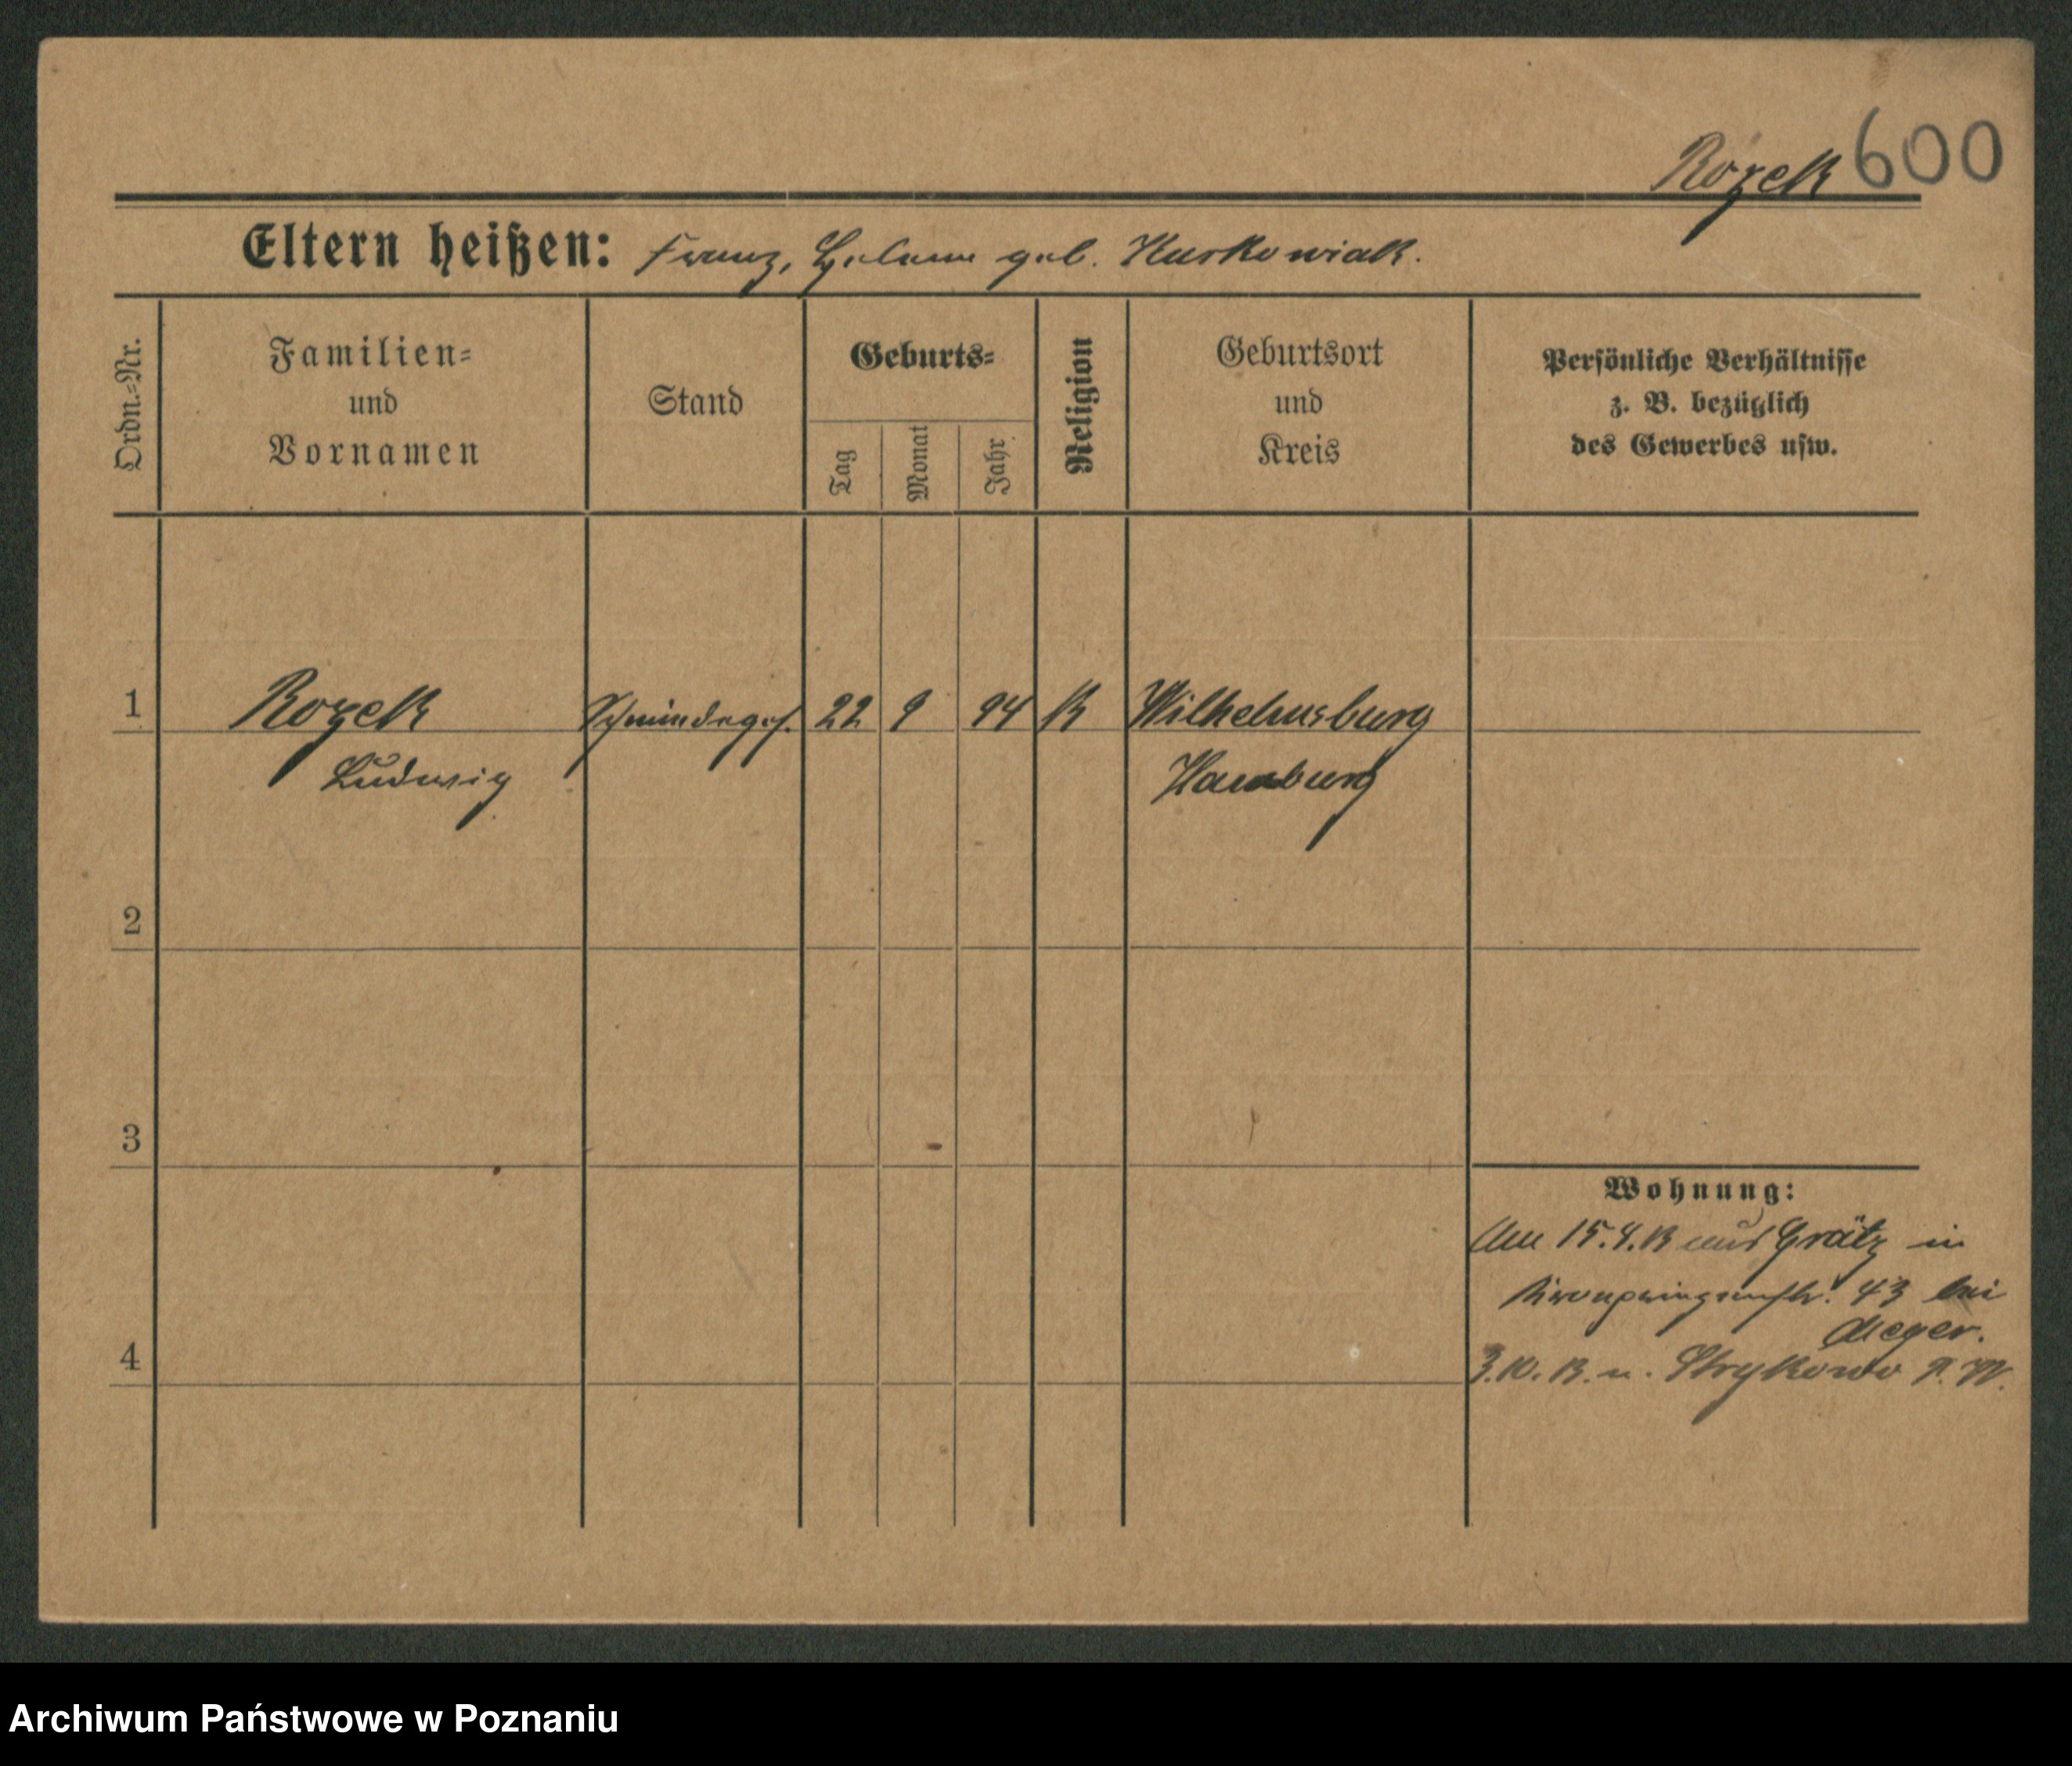 Rozek 600
Eltern heißen: Franz, Helene geb. Kurkowiak.
Ordn.-Nr.
Familien-
und
Vornamen
Stand
Geburts-
Tag
Monat
Jahr
Religion
Geburtsort
und
Kreis
Persönliche Verhältnisse
z. B. bezüglich
des Gewerbes usw.
1 Rozek 22 9 94 K Wilhelmsburg
Ludwig Hamburg
2
3
4
Wohnung:
15.4.13 aus Grätz in
Kronprinzenstr. 43 bei
3.10.13. n. Strykowo P. W.
Archiwum Państwowe w Poznaniu